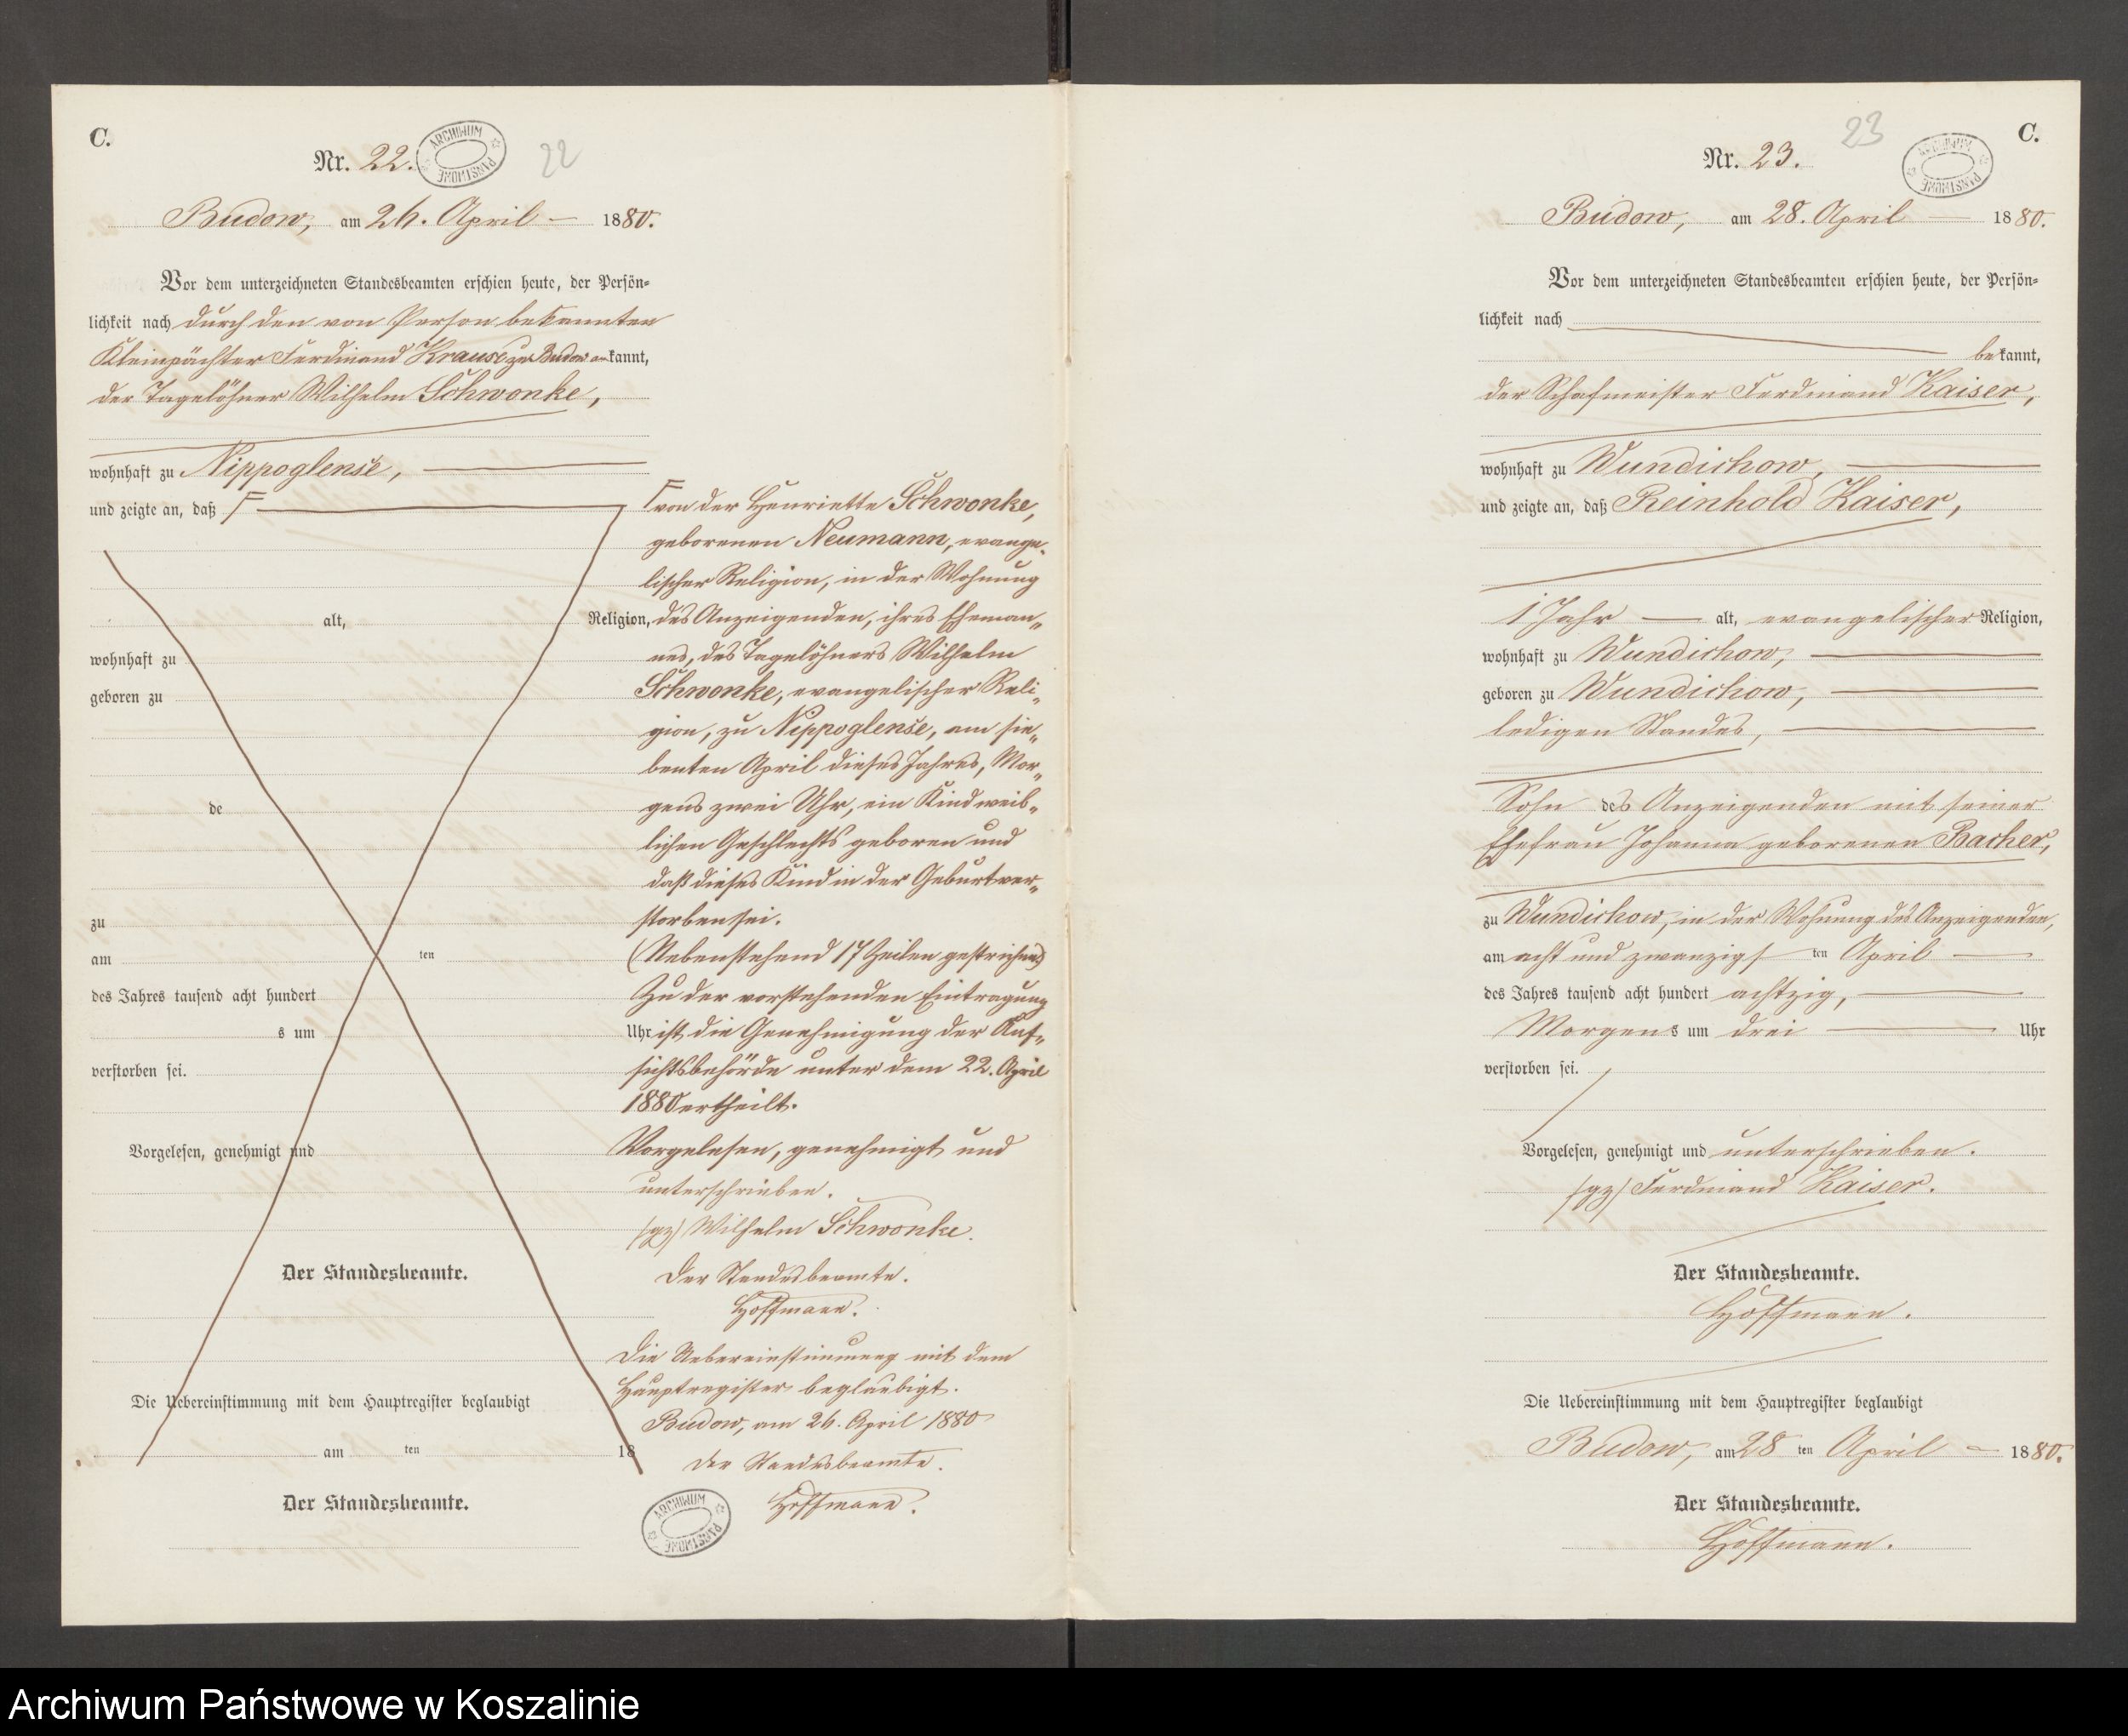 C.
Nr. 22.
ARCHIWUM PAŃSTWOWE
22
Budow, am 24. April 1880.
Vor dem unterzeichneten Standesbeamten erschien heute, der Persön-
lichkeit nach durch den von Person bekannten
Kleinpächter Ferdinand Krause zu Budow anerkannt,
der Tagelöhner Wilhelm Schwonke,
wohnhaft zu Nippoglense,
und zeigte an, daß
alt, Religion,
wohnhaft zu
geboren zu
de
zu
am ten
des Jahres tausend acht hundert
s um Uhr
verstorben sei.
Vorgelesen, genehmigt und
Der Standesbeamte.
Die Uebereinstimmung mit dem Hauptregister beglaubigt
am ten 18
Der Standesbeamte.
von der Henriette Schwonke,
geborenen Neumann, evange-
lischer Religion, in der Wohnung
des Anzeigenden, ihres Eheman-
nes, des Tagelöhners Wilhelm
Schwonke, evangelischer Reli-
gion, zu Nippoglense, am sie-
benten April dieses Jahres, Mor-
gens zwei Uhr, ein Kind weib-
lichen Geschlechts geboren und
daß dieses Kind in der Geburt ver-
storben sei.
(Nebenstehend 17 Zeilen gestrichen)
Zu der vorstehenden Eintragung
ist die Genehmigung der Auf-
sichtsbehörde unter dem 22. April
1880 ertheilt.
Vorgelesen, genehmigt und
unterschrieben.
(gz) Wilhelm Schwonke.
Der Standesbeamte.
Hoffmann.
Die Uebereinstimmung mit dem
Hauptregister beglaubigt.
Budow, am 24. April 1880
Der Standesbeamte.
Hoffmann.
ARCHIWUM PAŃSTWOWE
C.
23
Nr. 23.
ARCHIWUM PAŃSTWOWE
Budow, am 28. April 1880.
Vor dem unterzeichneten Standesbeamten erschien heute, der Persön-
lichkeit nach
bekannt,
der Schafmeister Ferdinand Kaiser,
wohnhaft zu Wundichow,
und zeigte an, daß Reinhold Kaiser,
1 Jahr alt, evangelischer Religion,
wohnhaft zu Wundichow,
geboren zu Wundichow,
ledigen Standes,
Sohn des Anzeigenden mit seiner
Ehefrau Johanna geborenen Bacher,
zu Wundichow, in der Wohnung des Anzeigenden,
am acht und zwanzigsten April
des Jahres tausend acht hundert achtzig,
Morgens um drei Uhr
verstorben sei.
Vorgelesen, genehmigt und unterschrieben.
(gz) Ferdinand Kaiser.
Der Standesbeamte.
Hoffmann.
Die Uebereinstimmung mit dem Hauptregister beglaubigt
Budow, am 28 ten April 1880.
Der Standesbeamte.
Hoffmann.
Archiwum Państwowe w Koszalinie